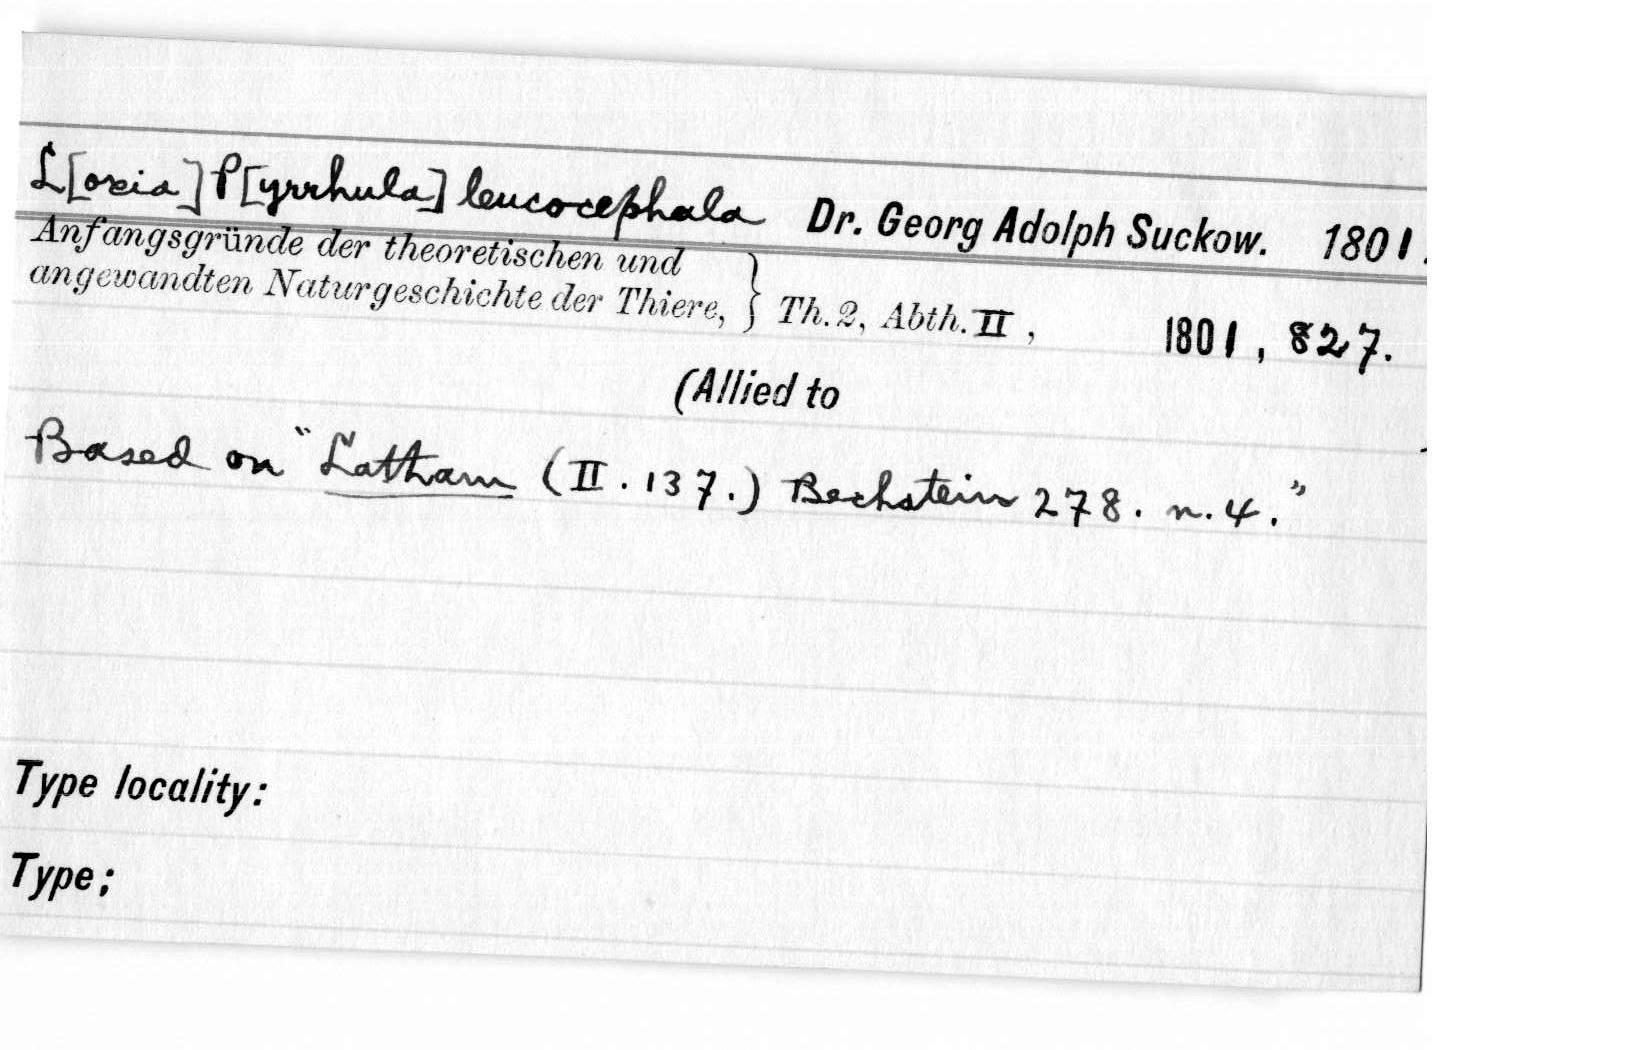 L[oxia] P[yrrhula] leucocephala Dr. Georg Adolph Suckow. 1801.
Anfangsgründe der theoretischen und
angewandten Naturgeschichte der Thiere, } Th. 2, Abth. II, 1801, 827.
(Allied to
Based on "Latham (II. 137.) Bechstein 278. n. 4."
Type locality:
Type;